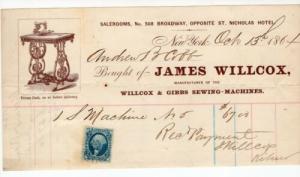 SALEROOMS, No. 508 BROADWAY, OPPOSITE ST. NICHOLAS HOTEL
New-York, Oct 13th 186
Andrew B Cobb
Bought of JAMES WILLCOX,
MANUFACTURER OF THE
WILLCOX & GIBBS SEWING-MACHINES.
1 S Machine No 5 $67.00
Recd Payment
J Willcox